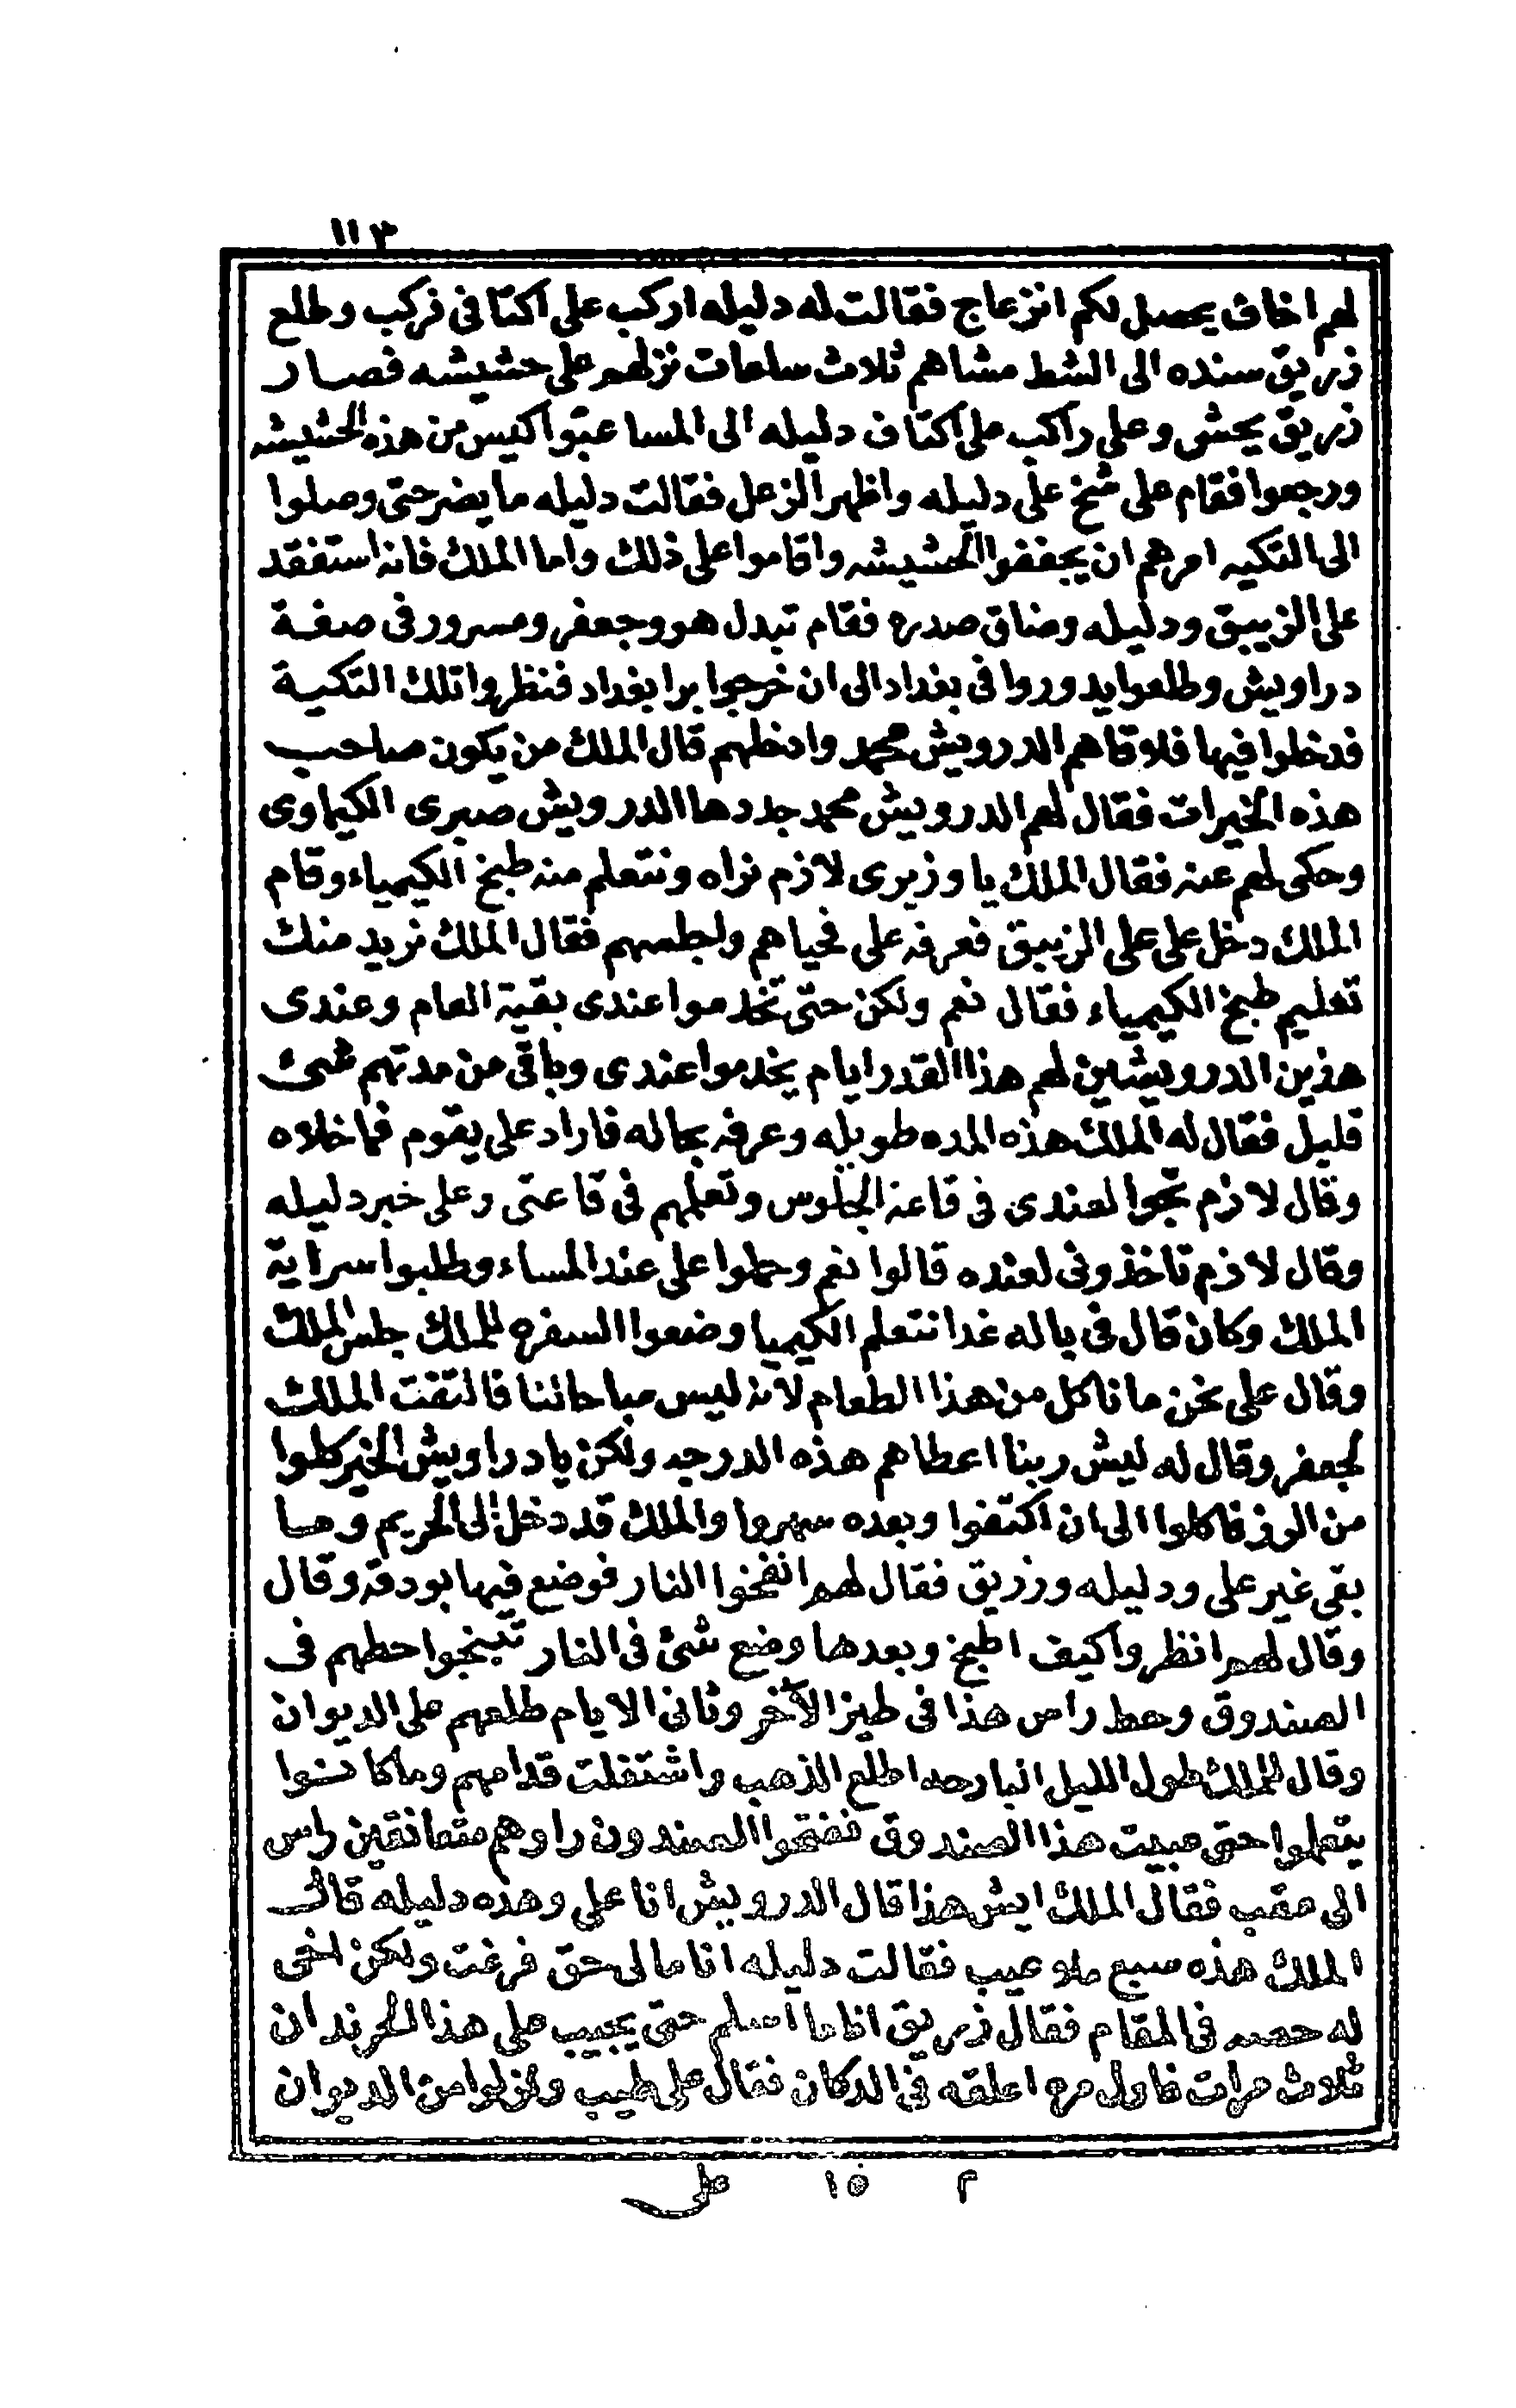 ١١٣
لهم اخاف يحصل لكم انزعاج فقالت له دليله اركب على اكتافى فركب وطلع
زريق سنده الى الشط مشاهم ثلاث ساعات نزلهم على حشيشه فصار
زريق يحش وعلى راكب على اكتاف دليله الى المسا عبّوا كيس من هذه الحشيشه
ورجعوا فقام على شخ على دليله واظهر الزعل فقالت دليله ما يضر حتى وصلوا
الى التكيه امرهم ان يجففوا الحشيشه واقاموا على ذلك واما الملك فانه استفقد
على الزيبق ودليله وضاق صدره فقام تبدل هو وجعفر ومسرور فى صفة
دراويش وطلعوا يدوروا فى بغداد الى ان خرجوا برا بغداد فنظروا تلك التكية
فدخلوا فيها فلاقاهم الدرويش محمد وادخلهم قال الملك من يكون صاحب
هذه الخيرات فقال لهم الدرويش محمد جددها الدرويش صبرى الكيماوى
وحكى لهم عنه فقال الملك يا وزيرى لازم نراه ونتعلم منه طبخ الكيمياء وقام
الملك دخل على على الزيبق فعرفه على فحياهم واجلسهم فقال الملك نريد منك
تعليم طبخ الكيمياء فقال نعم ولكن حتى تخدموا عندى بقية العام وعندى
هذين الدرويشين لهم هذا القدر ايام يخدموا عندى وباقى من مدتهم شئ
قليل فقال له الملك هذه المده طويله وعرفه بحاله فاراد على يقوم فما خلاه
وقال لازم تجوا لعندى فى قاعة الجلوس وتعلمهم فى قاعتى وعلى خبر دليله
وقال لازم تاخذونى لعنده قالوا نعم وحملوا على عند المساء وطلبوا سراية
الملك وكان قال فى باله غدا نتعلم الكيميا وضعوا السفره للملك جلس الملك
وقال على نحن ما ناكل من هذا الطعام لانه ليس مباحا لنا فالتفت الملك
لجعفر وقال له ليش ربنا اعطاهم هذه الدرجه ولكن يا دراويش الخير كلوا
من الرز فاكلوا الى ان اكتفوا وبعده سهروا والملك قد دخل الى الحريم وما
بقى غير على ودليله وزريق فقال لهم انفخوا النار فوضع فيها بودقه وقال
وقال لهم انظروا كيف اطبخ وبعدها وضع شئ فى النار تبنجوا حطهم فى
الصندوق وحط راس هذا فى طيز الآخر وثانى الايام طلعهم على الديوان
وقال للملك طول الليل انبارحه اطلع الذهب واشتغلت قدامهم وما كانوا
يتعلموا حتى عبيت هذا الصندوق ففتحوا الصندوق راوهم متعانقين راس
الى عقب فقال الملك ايش هذا قال الدرويش انا على وهذه دليله قال
الملك هذه سبع ملاعيب فقالت دليله انا مالى حق فرغت ولكن اخى
له حصه فى المقام فقال زريق انا ما اسلم حتى يجيب على هذا الجرندان
ثلاث مرات فاول مره اعلقه فى الدكان فقال على طيب ونزلوا من الديوان
م ١٥ على